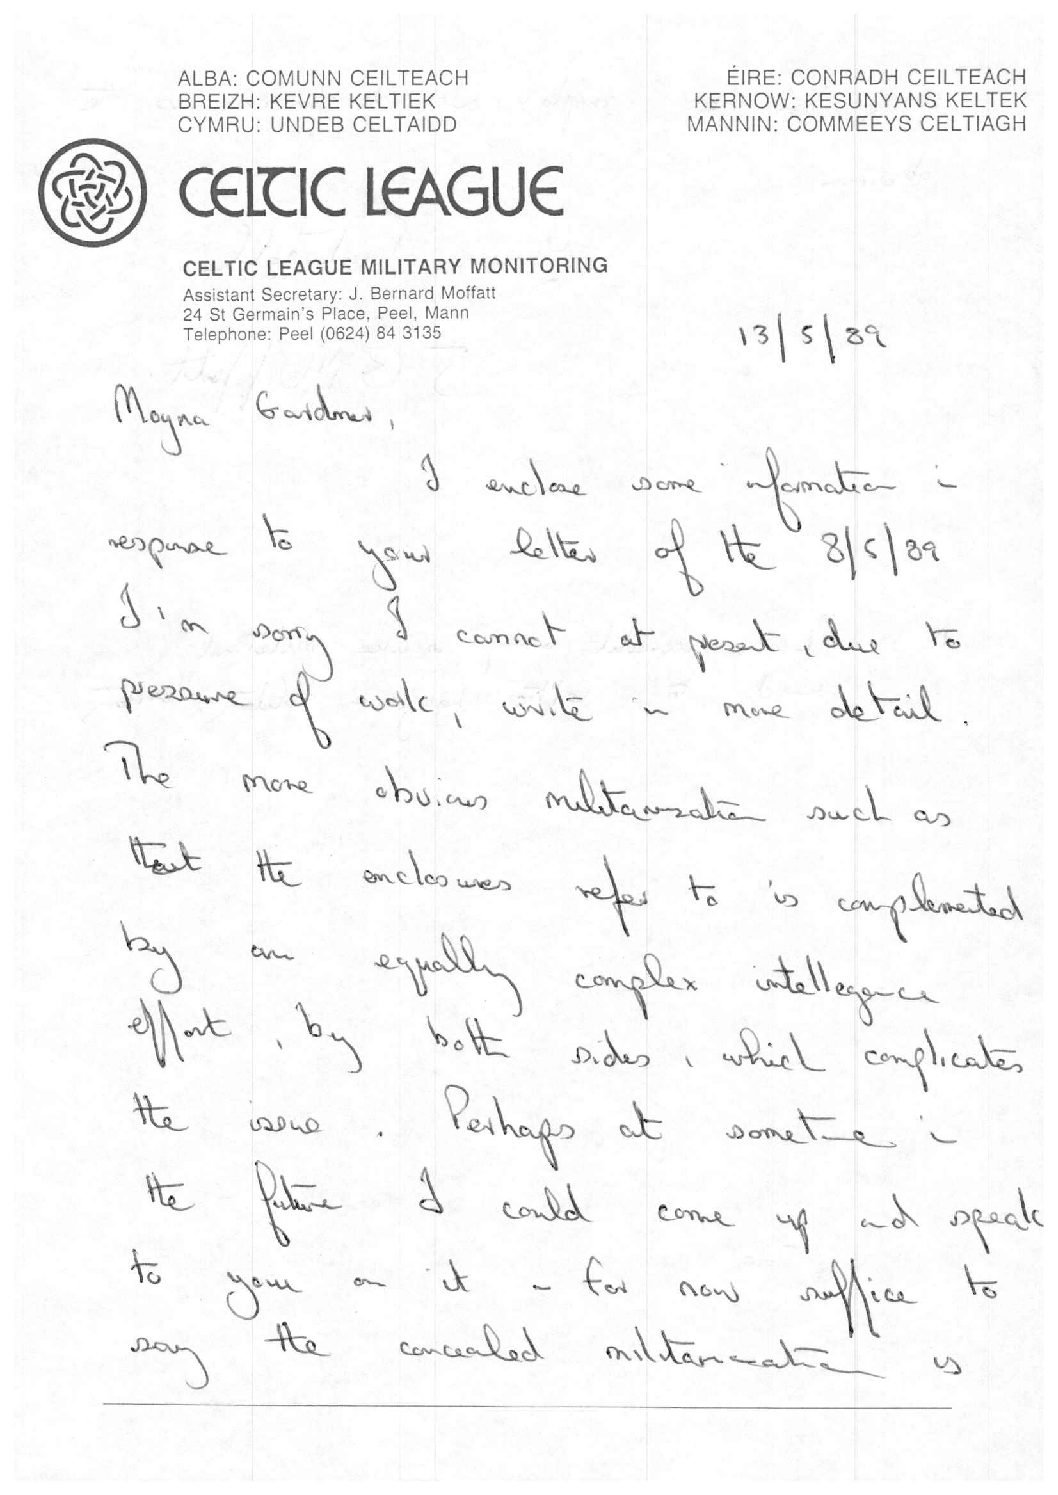 ALBA: COMUNN CEILTEACH
BREIZH: KEVRE KELTIEK
CYMRU: UNDEB CELTAIDD
ÉIRE: CONRADH CEILTEACH
KERNOW: KESUNYANS KELTEK
MANNIN: COMMEEYS CELTIAGH
CELTIC LEAGUE
CELTIC LEAGUE MILITARY MONITORING
Assistant Secretary: J. Bernard Moffatt
24 St Germain's Place, Peel, Mann
Telephone: Peel (0624) 84 3135
13/5/89
Moyna Gardner,
I enclose some information in
response to your letter of the 8/5/89
I'm sorry I cannot at present, due to
pressure of work, write in more detail.
The more obvious militarisation such as
that the enclosures refer to is complemented
by an equally complex intellegence
effort, by both sides, which complicates
the issue. Perhaps at sometime in
the future I could come up and speak
to you on it - for now suffice to
say the concealed militarisation is